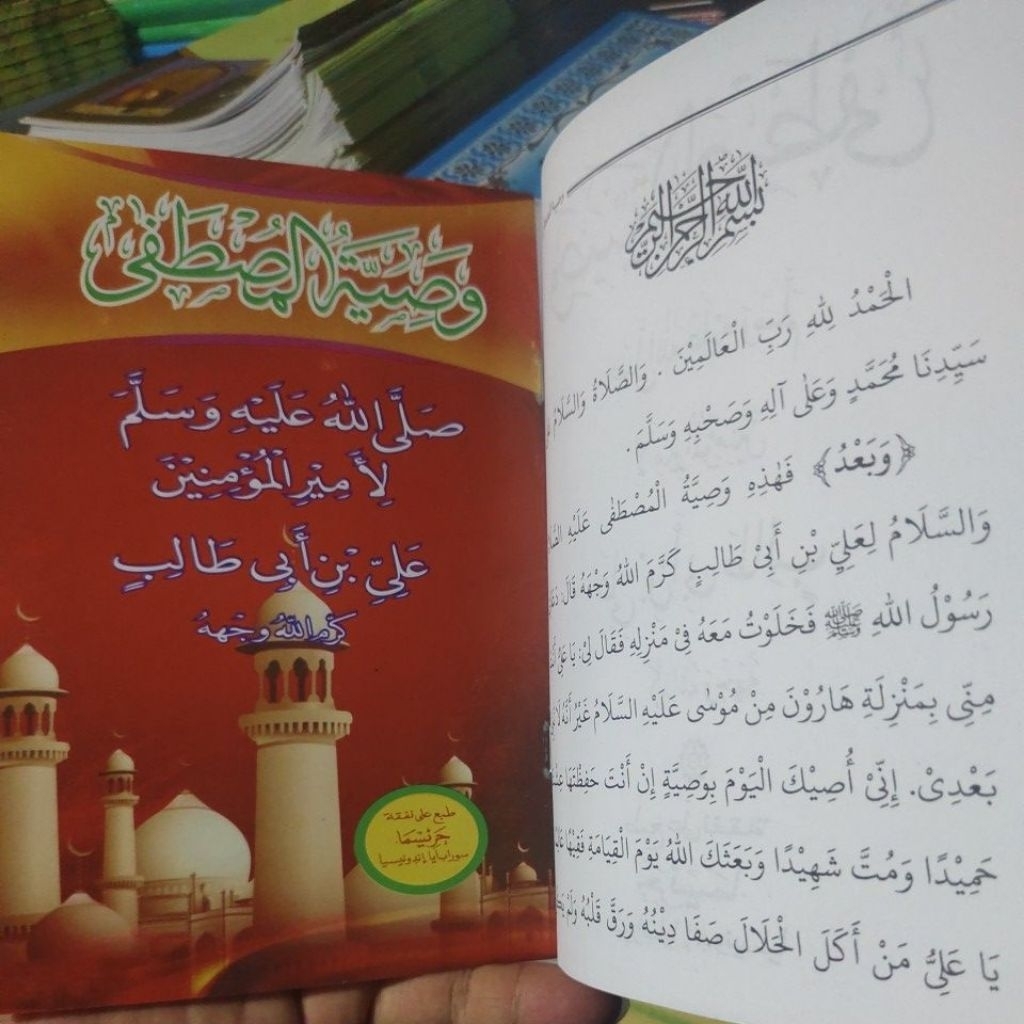 وَصِيَّةُ الْمُصْطَفَى
صَلَّى اللهُ عَلَيْهِ وَسَلَّمَ
لِأَمِيْرِ الْمُؤْمِنِيْنَ
عَلِيِّ بْنِ أَبِي طَالِبٍ
كَرَّمَ اللهُ وَجْهَهُ
طبع على نفقة
حَرِيْسْمَا
سورابايا إندونيسيا
بِسْمِ اللهِ الرَّحْمٰنِ الرَّحِيْمِ
الْحَمْدُ لِلهِ رَبِّ الْعَالَمِيْنَ . وَالصَّلَاةُ وَالسَّلَامُ
سَيِّدِنَا مُحَمَّدٍ وَعَلَى آلِهِ وَصَحْبِهِ وَسَلَّمَ.
﴿وَبَعْدُ﴾ فَهٰذِهِ وَصِيَّةُ الْمُصْطَفٰى عَلَيْهِ
وَالسَّلَامُ لِعَلِيِّ بْنِ أَبِيْ طَالِبٍ كَرَّمَ اللهُ وَجْهَهُ قَالَ:
رَسُوْلُ اللهِ ﷺ فَخَلَوْتُ مَعَهُ فِيْ مَنْزِلِهِ فَقَالَ لِيْ: يَا عَلِيُّ
مِنِّى بِمَنْزِلَةِ هَارُوْنَ مِنْ مُوْسٰى عَلَيْهِ السَّلَامُ غَيْرَ أَنَّهُ لَا
بَعْدِىْ. إِنِّىْ أُصِيْكَ الْيَوْمَ بِوَصِيَّةٍ إِنْ أَنْتَ حَفِظْتَهَا
حَمِيْدًا وَمُتَّ شَهِيْدًا وَبَعَثَكَ اللهُ يَوْمَ الْقِيَامَةِ فَقِيْهًا
يَا عَلِيُّ مَنْ أَكَلَ الْحَلَالَ صَفَا دِيْنُهُ وَرَقَّ قَلْبُهُ وَلَمْ